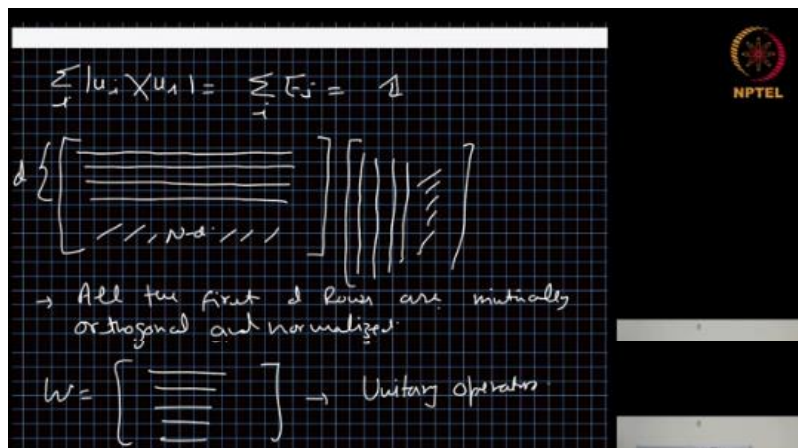 ∑_i |u_i⟩⟨u_i| = ∑_i E_i = 𝟙
NPTEL
d { [ N-d ] [ ]
→ All the first d Rows are mutually
orthogonal and normalized.
W = [ ] → Unitary operator.